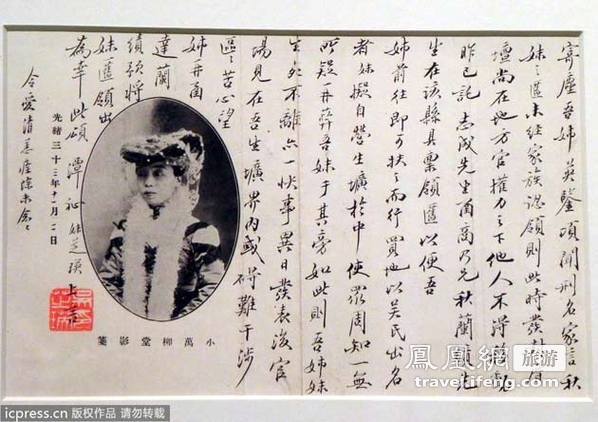 寄塵吾姊英鑒頃聞刑名家言秋
妹之匶未經家族認領則此時發封自
壇尚在地方官權力之下他人不得
昨已託志成先生函商乃兄秋蘭
生在該縣具稟領匶以便吾
姊前往即可扶之而行買地以吴民出名
者妹擬自營生壙於中使眾周知一無
所疑再葬吾妹于其旁如此則吾姊妹
生死不離亦一快事異日發表後官
場見在吾生壙界內或碍難干涉
區區苦心望
姊再函
達蘭
績頌將
妹匶領出
為幸此頌
潭祉 妹芝瑛上言
令愛清恙痊
光緒三十三年十二月二日
小萬柳堂影箋
吳芝瑛
鳳凰網旅游
travel.ifeng.com
icpress.cn 版权作品 请勿转载